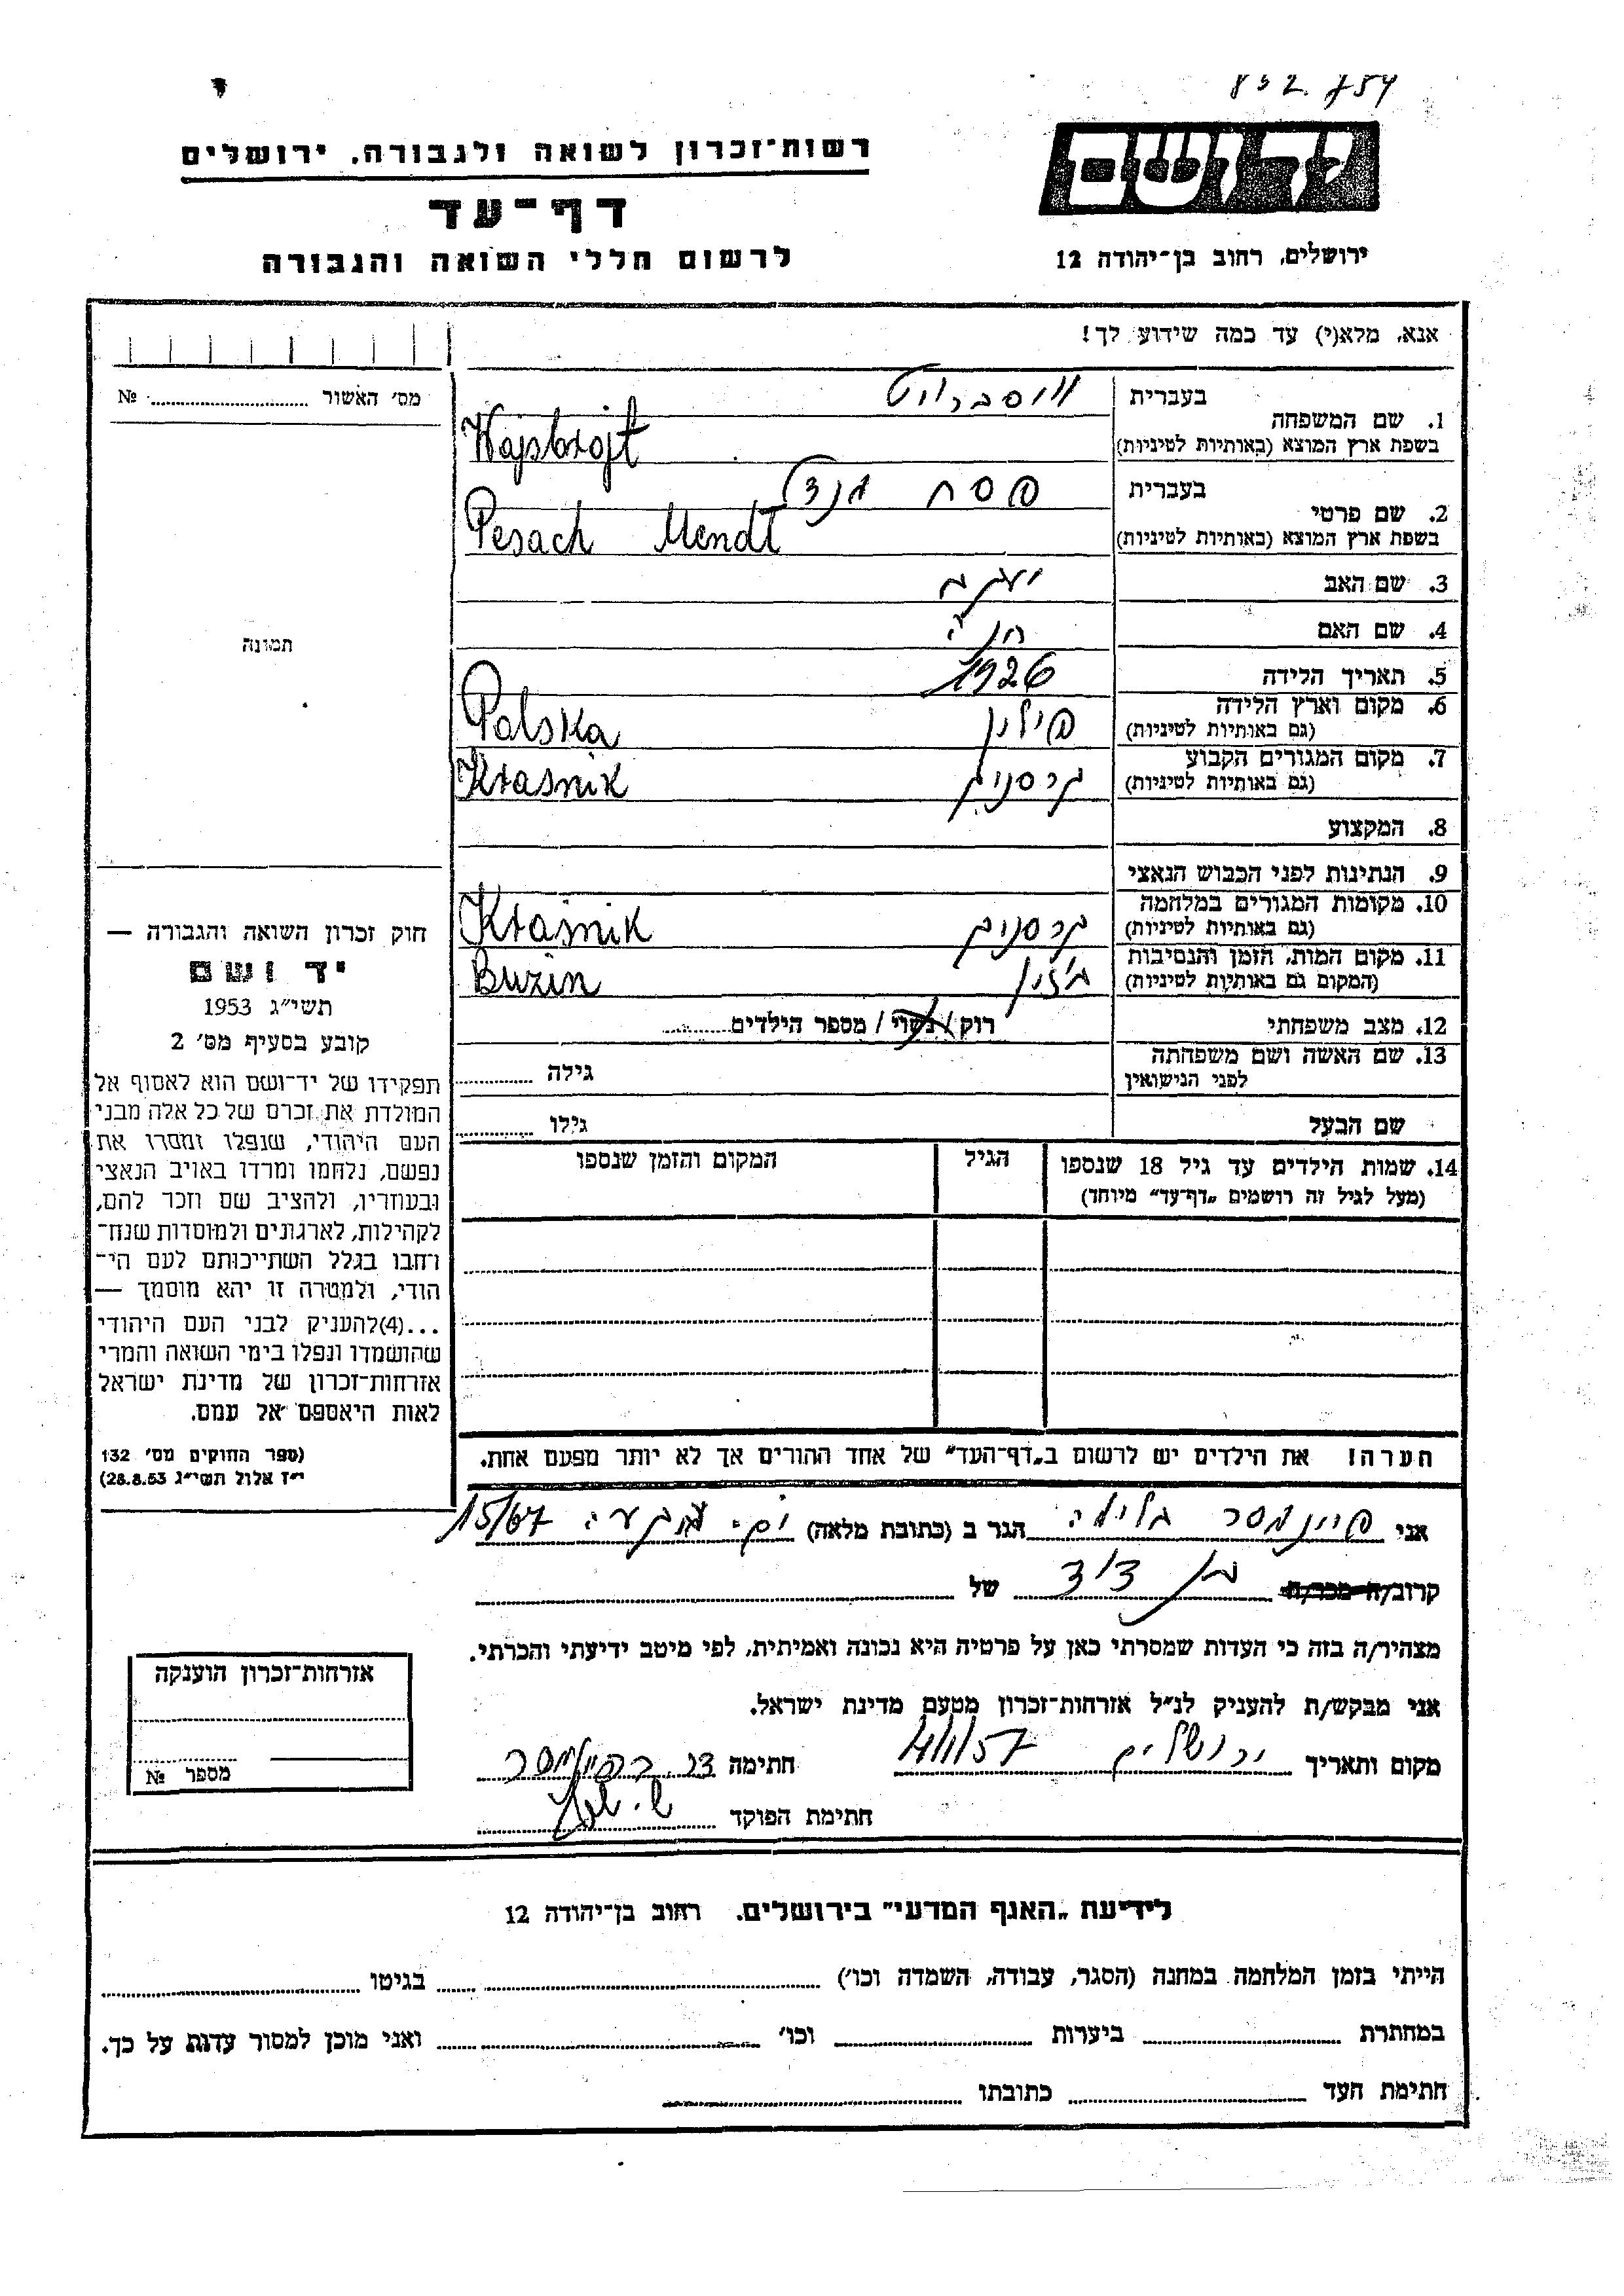 832 754
יד ושם
רשות־זכרון לשואה ולגבורה. ירושלים
דף־עד
לרשום חללי השואה והגבורה
ירושלים, רחוב בן־יהודה 12
אנא, מלא(י) עד כמה שידוע לך!
מס׳ האשור №
תמונה
1. שם המשפחה
בעברית
וייסברויט
בשפת ארץ המוצא (באותיות לטיניות)
Wajsbrojt
2. שם פרטי
בעברית
פסח מנדל
בשפת ארץ המוצא (באותיות לטיניות)
Pesach Mendl
3. שם האב יעקב
4. שם האם חנה
5. תאריך הלידה 1926
6. מקום וארץ הלידה
(גם באותיות לטיניות)
פולין Polska
7. מקום המגורים הקבוע
(גם באותיות לטיניות)
קרסניק Kraśnik
8. המקצוע
9. הנתינות לפני הכבוש הנאצי
10. מקומות המגורים במלחמה
(גם באותיות לטיניות)
קרסניק Kraśnik
11. מקום המות, הזמן והנסיבות
(המקום גם באותיות לטיניות)
בוזין Buzin
12. מצב משפחתי רוק / נשוי / מספר הילדים
13. שם האשה ושם משפחתה
לפני הנישואין
גילה
שם הבעל גילו
14. שמות הילדים עד גיל 18 שנספו
(מעל לגיל זה רושמים „דף־עד״ מיוחד)
הגיל
המקום והזמן שנספו
הערה! את הילדים יש לרשום ב„דף־העד״ של אחד ההורים אך לא יותר מפעם אחת.
חוק זכרון השואה והגבורה —
יד ושם
תשי״ג 1953
קובע בסעיף מס׳ 2
תפקידו של יד־ושם הוא לאסוף אל
המולדת את זכרם של כל אלה מבני
העם היהודי, שנפלו ומסרו את
נפשם, נלחמו ומרדו באויב הנאצי
ובעוזריו, ולהציב שם וזכר להם,
לקהילות, לארגונים ולמוסדות שנח־
רחבו בגלל השתייכותם לעם הי־
הודי, ולמטרה זו יהא מוסמך —
...(4)להעניק לבני העם היהודי
שהושמדו ונפלו בימי השואה והמרי
אזרחות־זכרון של מדינת ישראל
לאות היאספם אל עמם.
(ספר החוקים מס׳ 132
י״ז אלול תשי״ג 28.8.53)
אני פיינמסר הגר ב (כתובת מלאה) 15/67
קרוב/ה מכר/ה בן דוד של
מצהיר/ה בזה כי העדות שמסרתי כאן על פרטיה היא נכונה ואמיתית, לפי מיטב ידיעתי והכרתי.
אני מבקש/ת להעניק לנ״ל אזרחות־זכרון מטעם מדינת ישראל.
מקום ותאריך ירושלים 4/1/57 חתימה
חתימת הפוקד
אזרחות־זכרון הוענקה
מספר №
לידיעת „האגף המדעי״ בירושלים. רחוב בן־יהודה 12
הייתי בזמן המלחמה במחנה (הסגר, עבודה, השמדה וכו׳) בגיטו
במחתרת ביערות וכו׳ ואני מוכן למסור עדות על כך.
חתימת העד כתובתו